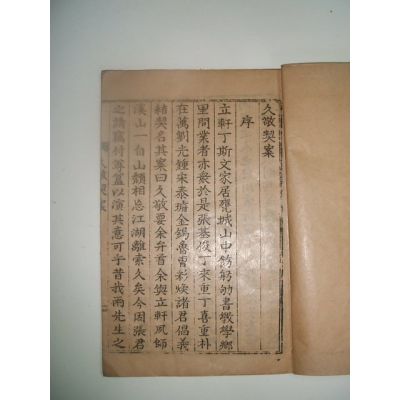 久敬契案
序
立軒丁斯文家居甕城山中飭躬劬書墩學鄉
里問業者亦衆於是張基俊丁來重丁喜重朴
在萬劉光鍾宋泰瑃金錫魯曺彩煥諸君倡義
結契名其案曰久敬要余弁首余與立軒夙師
溪山一自山頹相忘江湖離索久矣今因張君
之請竊付尊蓋以演其意可乎昔我兩先生之
久敬契案